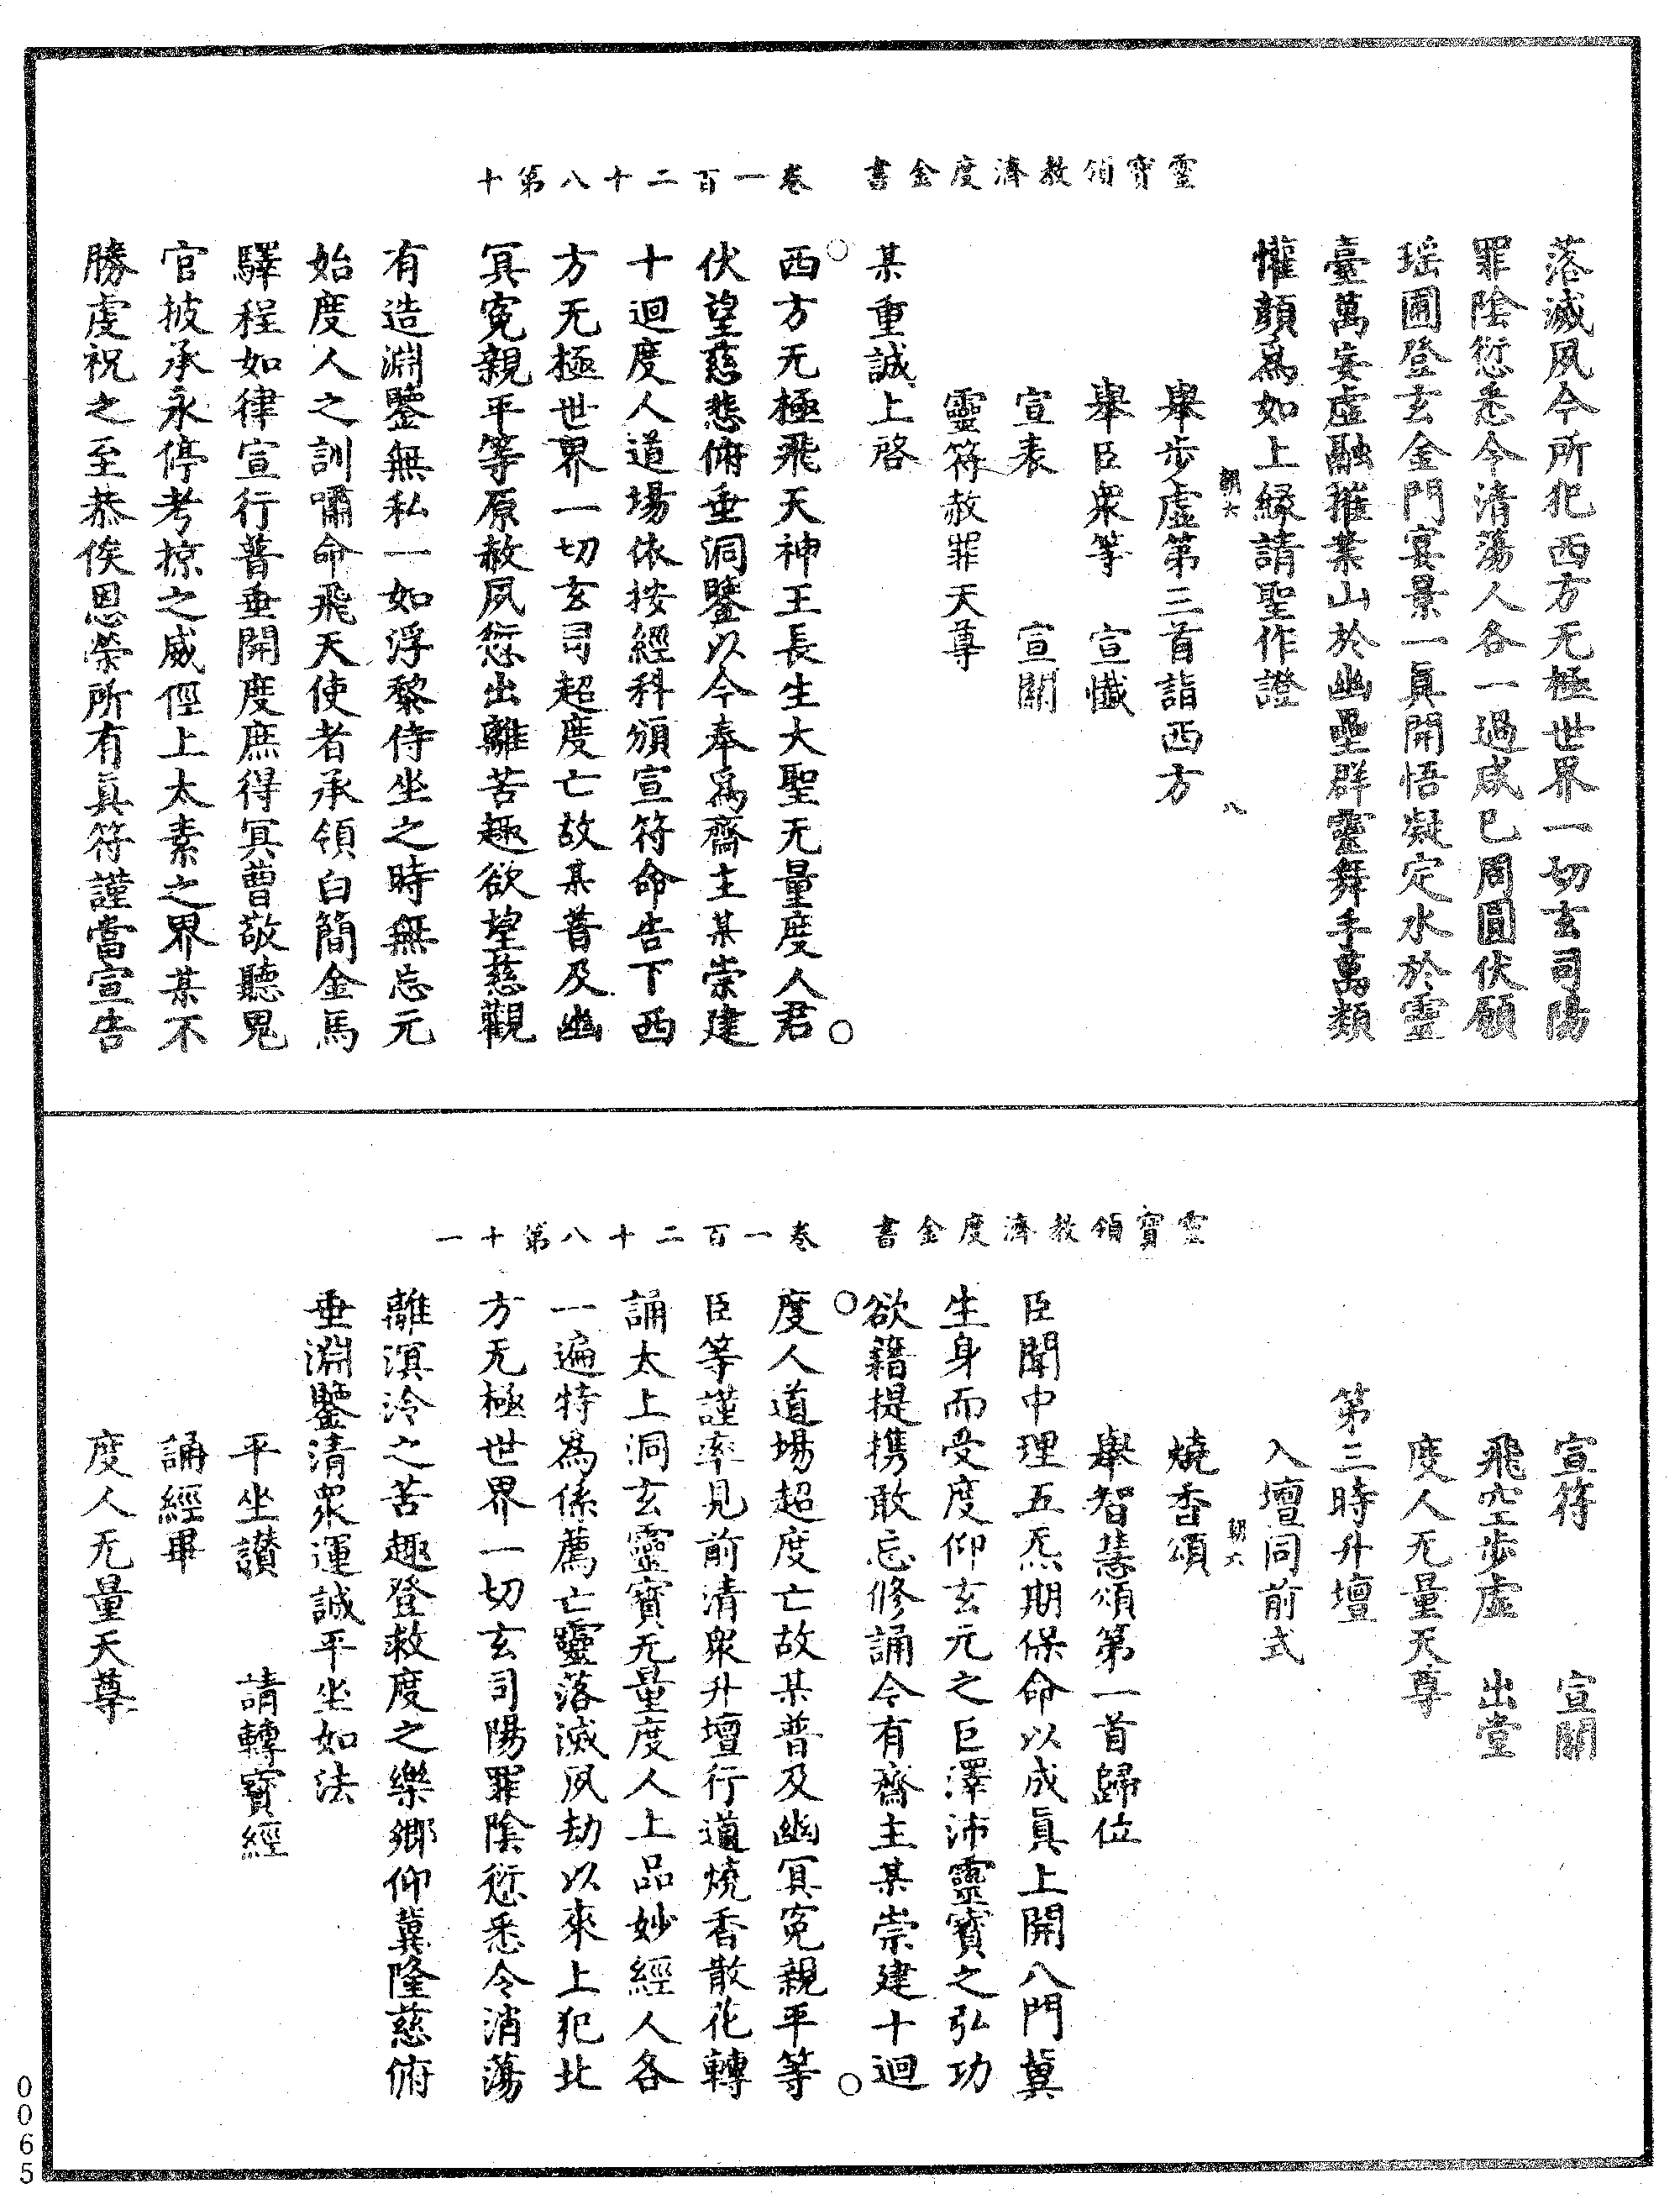 靈寶領教濟度金書　卷一百二十八第十
落滅夙今所犯西方无極世界一切玄司陽
罪陰愆悉令清蕩人各一過咸已周圓伏願
瑶圃登玄金門宴景一真開悟凝定水於靈
臺萬妄虛融摧業山於幽壘群靈舞手萬類
懽顔爲如上緣請聖作證
朝六　八
舉步虛第三首詣西方
舉臣衆等　宣懺
宣表　宣關
靈符赦罪天尊
某重誠上啓
西方无極飛天神王長生大聖无量度人君
伏望慈悲俯垂洞鑒以今奉爲齋主某崇建
十迴度人道場依按經科頒宣符命告下西
方无極世界一切玄司超度亡故某普及幽
冥寃親平等原赦夙愆出離苦趣欲望慈觀
有造淵鑒無私一如浮黎侍坐之時無忘元
始度人之訓嘯命飛天使者承領白簡金馬
驛程如律宣行普垂開度庶得冥曹敬聽鬼
官披承永停考掠之威徑上太素之界某不
勝虔祝之至恭俟恩榮所有真符謹當宣告
靈寶領教濟度金書　卷一百二十八第十一
宣符　宣關
飛空步虛　出堂
度人无量天尊
第三時升壇
入壇同前式
朝六
燒香頌
舉智慧頌第一首歸位
臣聞中理五炁期保命以成真上開八門冀
生身而受度仰玄元之巨澤沛靈寶之弘功
欲籍提携敢忘修誦今有齋主某崇建十迴
度人道場超度亡故某普及幽冥寃親平等
臣等謹率見前清衆升壇行道燒香散花轉
誦太上洞玄靈寶无量度人上品妙經人各
一遍特為係薦亡靈落滅夙劫以來上犯北
方无極世界一切玄司陽罪陰愆悉令消蕩
離溟泠之苦趣登救度之樂鄉仰冀隆慈俯
垂淵鑒清衆運誠平坐如法
平坐讃　請轉寶經
誦經畢
度人无量天尊
0065